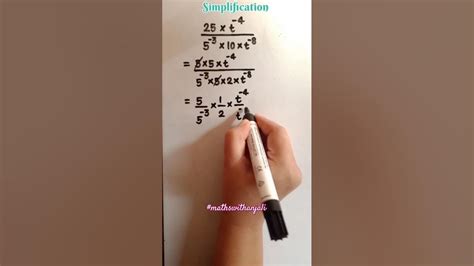 Simplification
25 × t⁻⁴
5⁻³ × 10 × t⁻⁸
= 5 × 5 × t⁻⁴
5⁻³ × 5 × 2 × t⁻⁸
= 5/5⁻³ × 1/2 × t⁻⁴/t⁻
#mathswithanjali